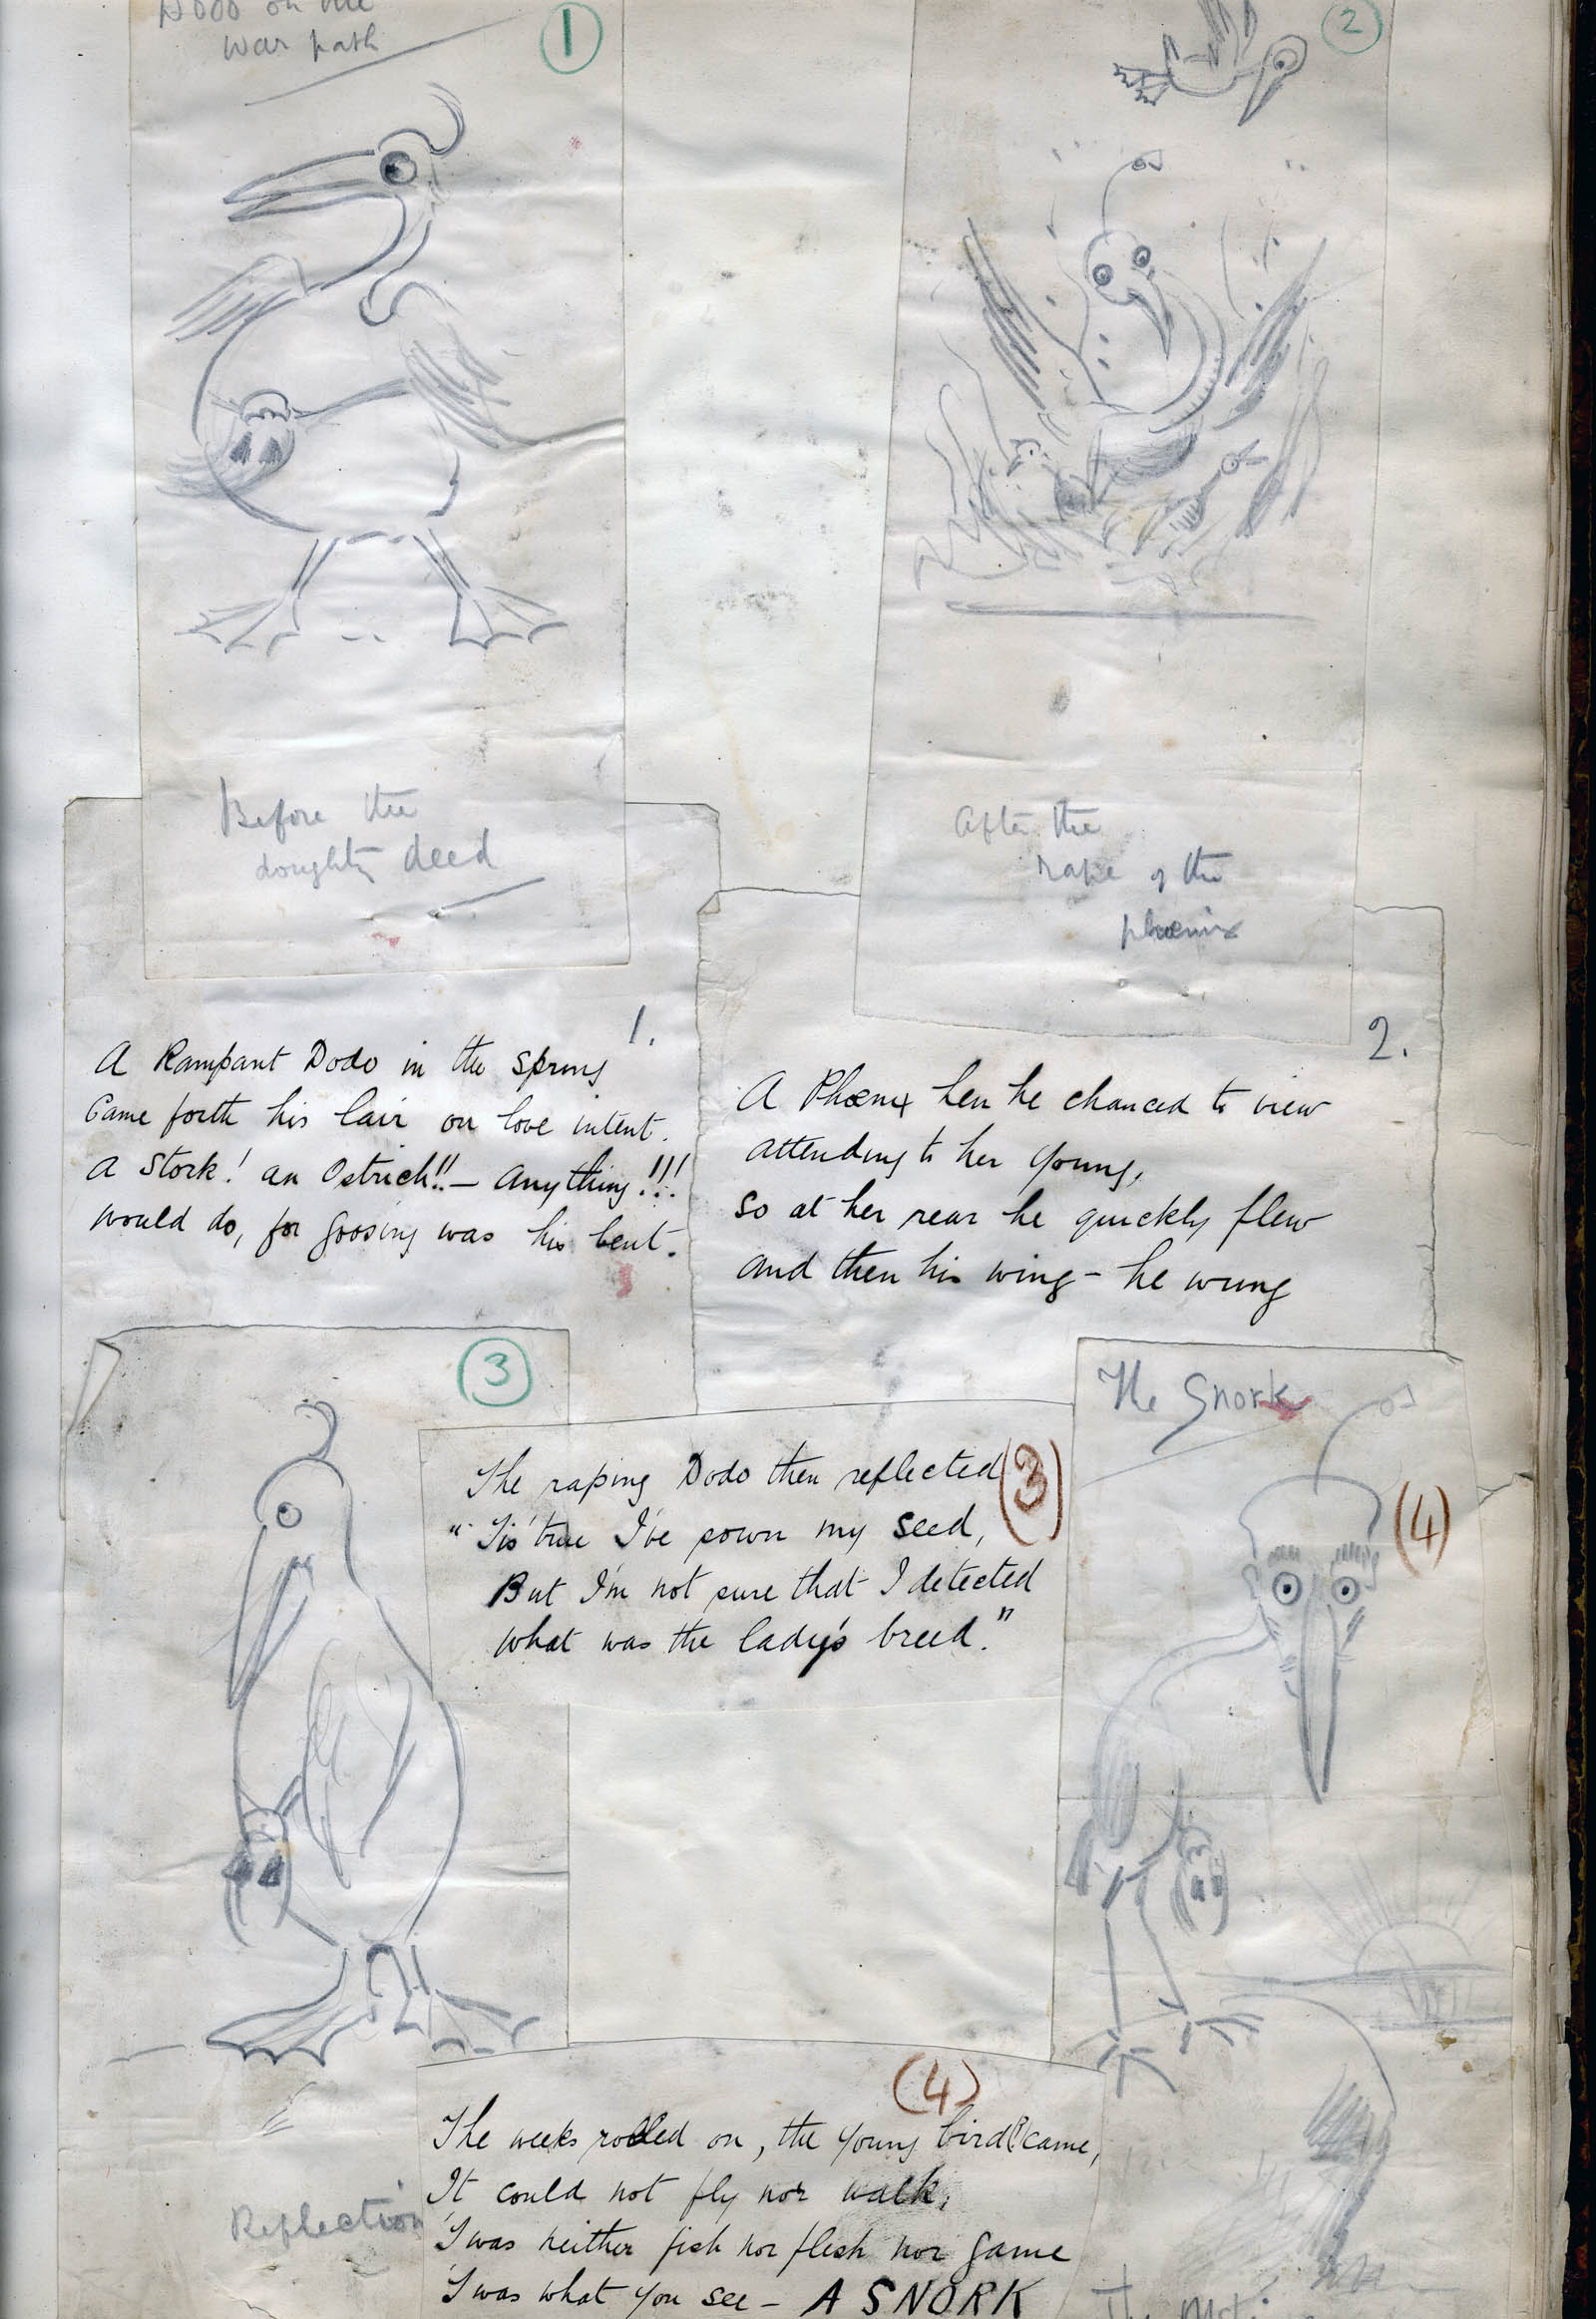 Dodo on the
war path
1
2
Before the
doughty deed
After the
rape of the
phœnix
1.
A Rampant Dodo in the Spring
Came forth his lair on love intent.
A Stork! an Ostrich!! — Anything!!!
would do, for goosing was his bent.
2.
A Phœnix hen he chanced to view
attending to her young,
So at her rear he quickly flew
and then his wing - he wrung
3
The raping Dodo then reflected
(3)
"'Tis true I've sown my seed,
But I'm not sure that I detected
what was the lady's breed."
The Snork
(4)
(4)
The weeks rolled on, the young bird came,
It could not fly nor walk,
'Twas neither fish nor flesh nor game
'Twas what you see - A SNORK
Reflection
The